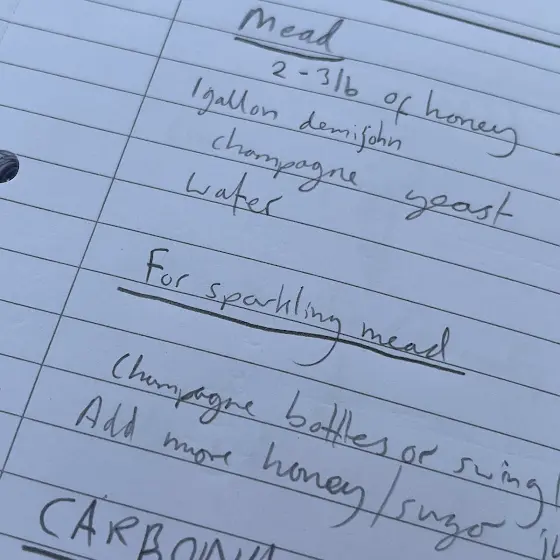 Mead
2-3lb of honey
1 gallon demijohn
champagne yeast
Water
For sparkling mead
Champagne bottles or swing
Add more honey/sugo
CARBON